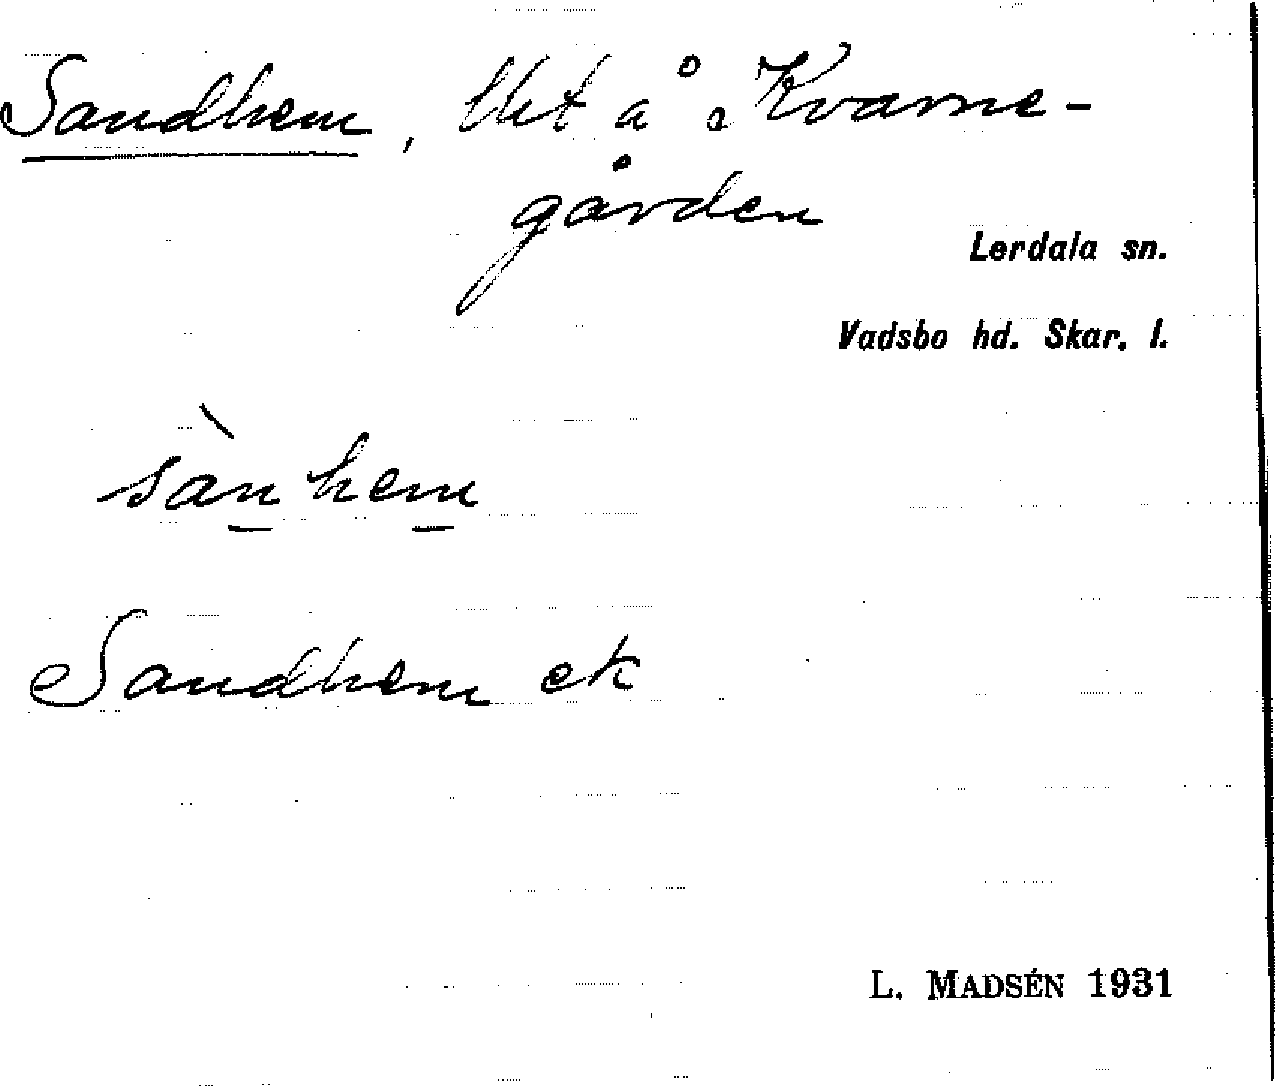 Sandhem, lht å Kvarne-
gården
Lerdala sn.
Vadsbo hd. Skar. l.
sànhem
Sandhem ek
L. MADSÉN 1931